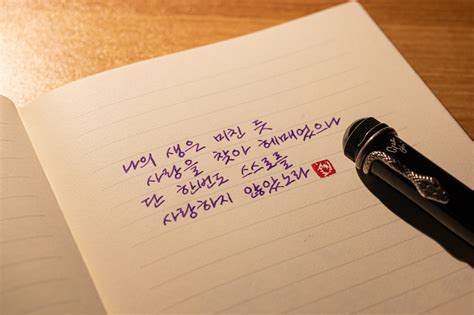 나의 생은 미친 듯
사랑을 찾아 헤매었으나
단 한번도 스스로를
사랑하지 않았노라